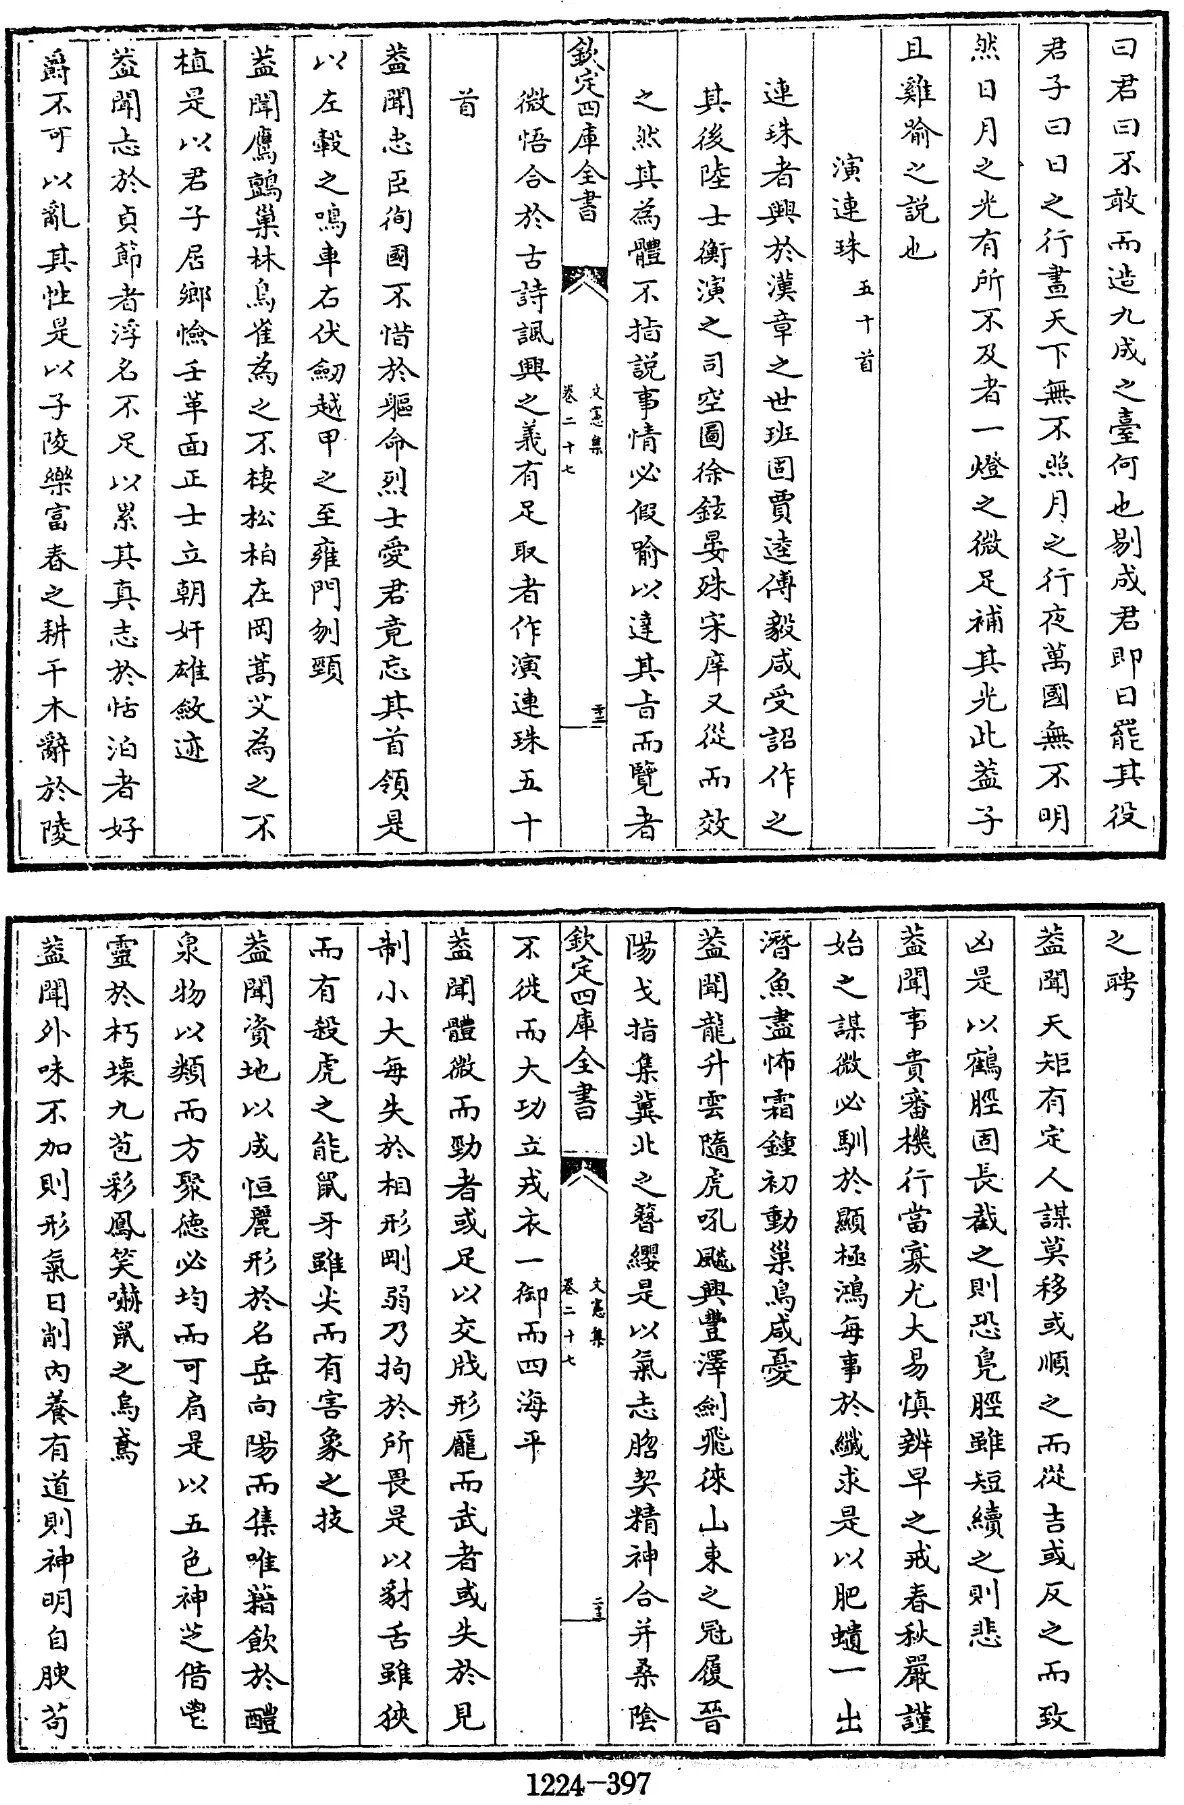 曰君曰不敢而造九成之臺何也剔成君即日罷其役
君子曰日之行晝天下無不照月之行夜萬國無不明
然日月之光有所不及者一燈之微足補其光此葢子
且雞喻之説也
演連珠五十首
連珠者興於漢章之世班固賈逵傅毅咸受詔作之
其後陸士衡演之司空圖徐鉉晏殊宋庠又從而效
之然其為體不指説事情必假喻以達其㫖而覽者
欽定四庫全書
文憲集
卷二十七
二十二
微悟合於古詩諷興之義有足取者作演連珠五十
首
葢聞忠臣徇國不惜於軀命烈士愛君竟忘其首領是
以左轂之鳴車右伏劒越甲之至雍門刎頸
葢聞鷹鸇巢林鳥雀為之不棲松柏在岡蒿艾為之不
植是以君子居鄉憸壬革面正士立朝奸雄斂迹
葢聞志於貞節者浮名不足以累其真志於恬泊者好
爵不可以亂其性是以子陵樂富春之耕干木辭於陵
之聘
葢聞天矩有定人謀莫移或順之而從吉或反之而致
凶是以鶴脛固長截之則恐鳬脛雖短續之則悲
葢聞事貴審機行當寡尤大易慎辨早之戒春秋嚴謹
始之謀微必馴於顯極鴻每事於纖求是以肥蟦一出
潛魚盡怖霜鍾初動巢鳥咸憂
葢聞龍升雲隨虎吼飈興豐澤劍飛徠山東之冠履晉
陽戈指集冀北之簪纓是以氣志脗契精神合并桑陰
欽定四庫全書
文憲集
卷二十七
二十三
不徙而大功立戎衣一御而四海平
葢聞體微而勁者或足以交戕形龐而武者或失於見
制小大每失於相形剛弱乃拘於所畏是以豺舌雖狹
而有殺虎之能鼠牙雖尖而有害象之技
葢聞資地以成恒麗形於名岳向陽而集唯藉飲於醴
泉物以類而方聚徳必均而可肩是以五色神芝偕㠯
靈於朽壤九苞彩鳳笑嚇鼠之烏鳶
葢聞外味不加則形氣日削內養有道則神明自腴苟
1224—397